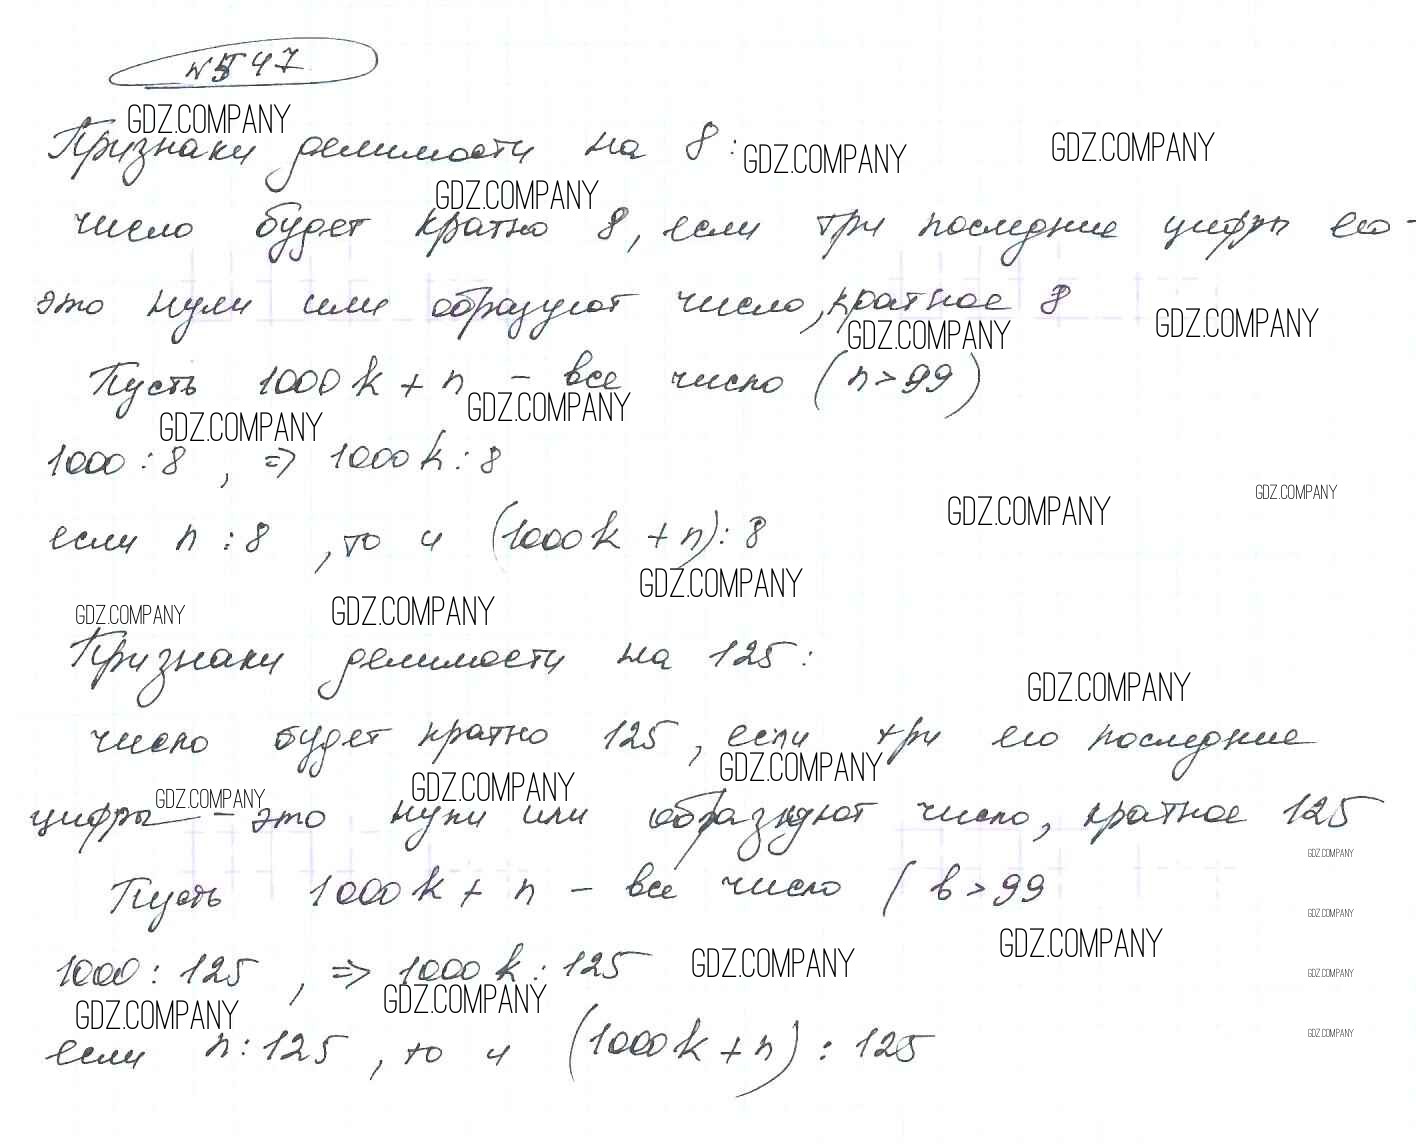 №547
GDZ.COMPANY
Признаки делимости на 8:
GDZ.COMPANY
GDZ.COMPANY
GDZ.COMPANY
число будет кратно 8, если три последние цифры его -
это нули или образуют число, кратное 8
GDZ.COMPANY
GDZ.COMPANY
Пусть 1000k + n - все число (n > 99)
GDZ.COMPANY
GDZ.COMPANY
1000 : 8 , => 1000k : 8
GDZ.COMPANY
GDZ.COMPANY
если n : 8 , то и (1000k + n) : 8
GDZ.COMPANY
GDZ.COMPANY
GDZ.COMPANY
Признаки делимости на 125:
GDZ.COMPANY
число будет кратно 125, если три его последние
GDZ.COMPANY
GDZ.COMPANY
GDZ.COMPANY
цифры - это нули или образуют число, кратное 125
GDZ.COMPANY
Пусть 1000k + n - все число ( b > 99
GDZ.COMPANY
GDZ.COMPANY
1000 : 125 , => 1000k : 125
GDZ.COMPANY
GDZ.COMPANY
GDZ.COMPANY
GDZ.COMPANY
если n : 125 , то и (1000k + n) : 125
GDZ.COMPANY